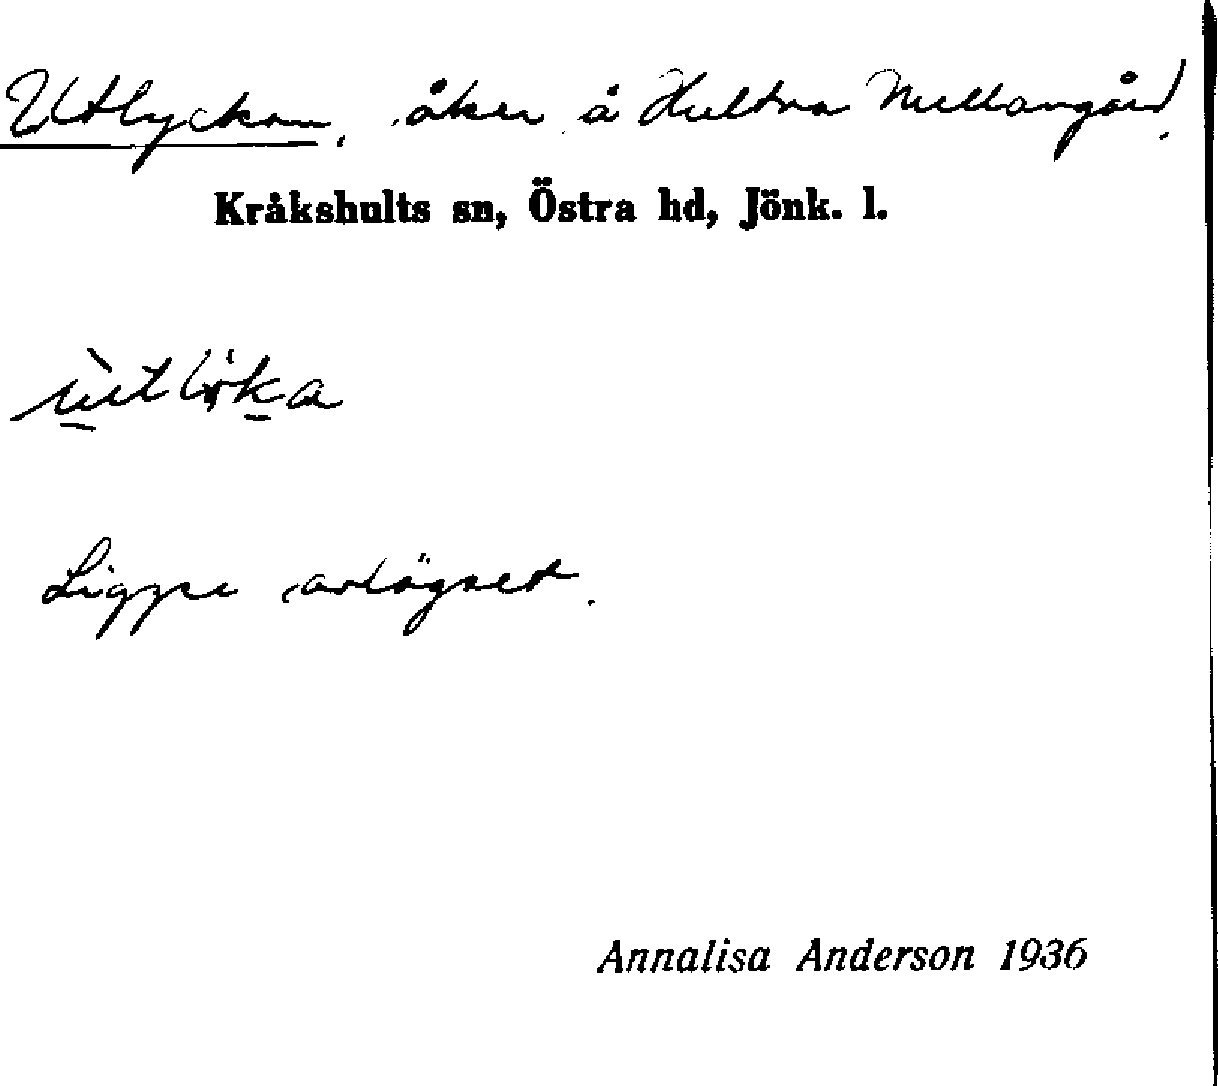 Utlyckan, åker å Hultna Mellangård.
Kråkshults sn, Östra hd, Jönk. l.
Ligger avlägset.
Annalisa Anderson 1936